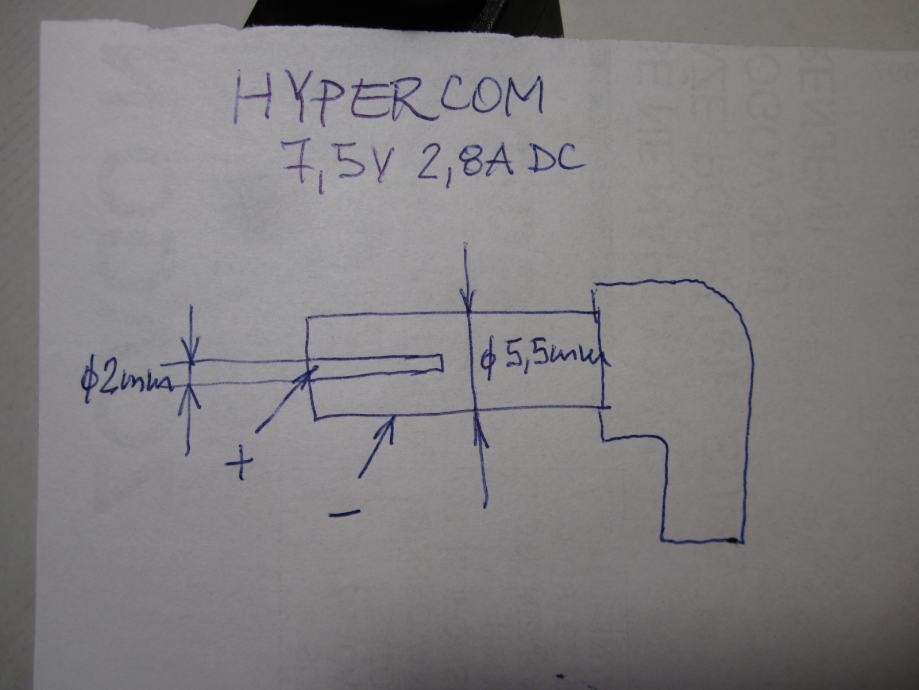 HYPERCOM
7,5V 2,8A DC
ϕ5,5mm
ϕ2mm
+
-